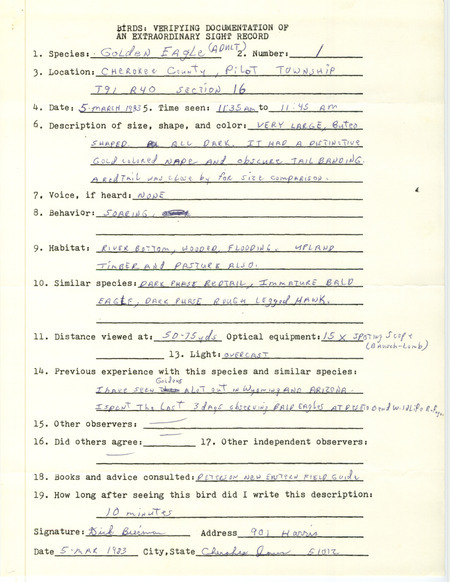 BIRDS: VERIFYING DOCUMENTATION OF
AN EXTRAORDINARY SIGHT RECORD
1. Species: Golden Eagle (ADULT) 2. Number: 1
3. Location: CHEROKEE County, PILOT TOWNSHIP
T91 R40 SECTION 16
4. Date: 5-MARCH 1983 5. Time seen: 11:35am to 11:45 AM
6. Description of size, shape, and color: VERY LARGE, Buteo
SHAPED ALL DARK. IT HAD A DISTINCTIVE
GOLD COLORED NAPE AND OBSCURE TAIL BANDING.
A REDTAIL WAS close by for SIZE COMPARISON.
7. Voice, if heard: NONE
8. Behavior: SOARING.
9. Habitat: RIVER BOTTOM, WOODED, FLOODING. UPLAND
TIMBER AND PASTURE ALSO.
10. Similar species: DARK PHASE REDTAIL, IMMATURE BALD
EAGLE, DARK PHASE ROUGH LEGGED HAWK.
11. Distance viewed at: 50-75yds Optical equipment: 15 X SPOTING SCOPE
(Bausch-Lomb)
13. Light: OVERCAST
14. Previous experience with this species and similar species:
I HAVE SEEN Goldens A LOT OUT IN Wyoming AND ARIZONA.
I SPENT THE LAST 3 days OBSERVING BALD EAGLES AT
15. Other observers:
16. Did others agree: 17. Other independent observers:
18. Books and advice consulted: PETERSON NEW EASTERN FIELD GUIDE
19. How long after seeing this bird did I write this description:
10 minutes
Signature: Dick Bierman Address 901 Harris
Date 5-MAR 1983 City, State Cherokee Iowa 51012